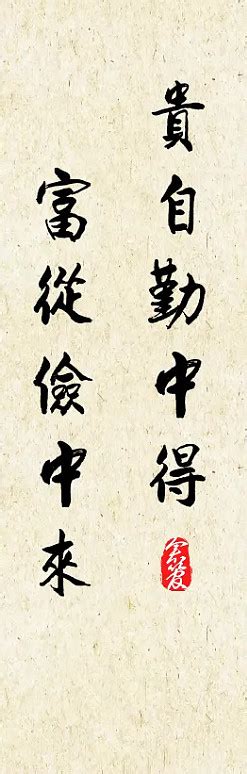 貴自勤中得
富從儉中來